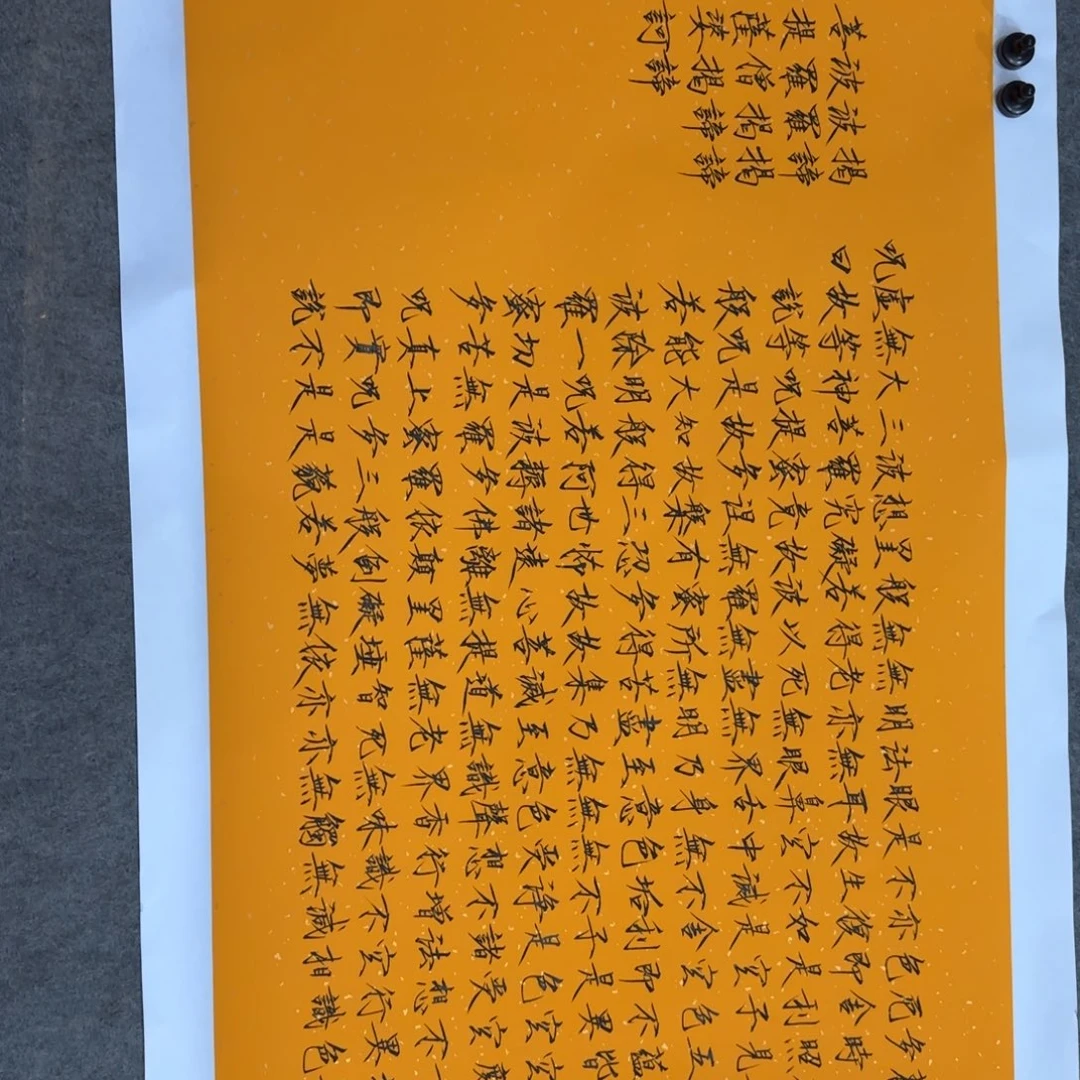 多時照見五蘊皆空度一
厄舍利子色不異空空不異色
色即是空空即是色受想行識
亦復如是舍利子是諸法空相
不生不滅不垢不淨不增不減
是故空中無色無受想行識無
眼耳鼻舌身意無色聲香味觸
法無眼界乃至無意識界無無
明亦無無明盡乃至無老死亦
無老死盡無苦集滅道無智亦
無得以無所得故菩提薩埵依
般若波羅蜜多故心無罣礙無
罣礙故無有恐怖遠離顛倒夢
想究竟涅槃三世諸佛依般若
波羅蜜多故得阿耨多羅三藐
三菩提故知般若波羅蜜多是
大神呪是大明呪是無上呪是
無等等呪能除一切苦真實不
虛故說般若波羅蜜多呪即說
呪曰
揭諦揭諦
波羅揭諦
波羅僧揭諦
菩提薩婆訶